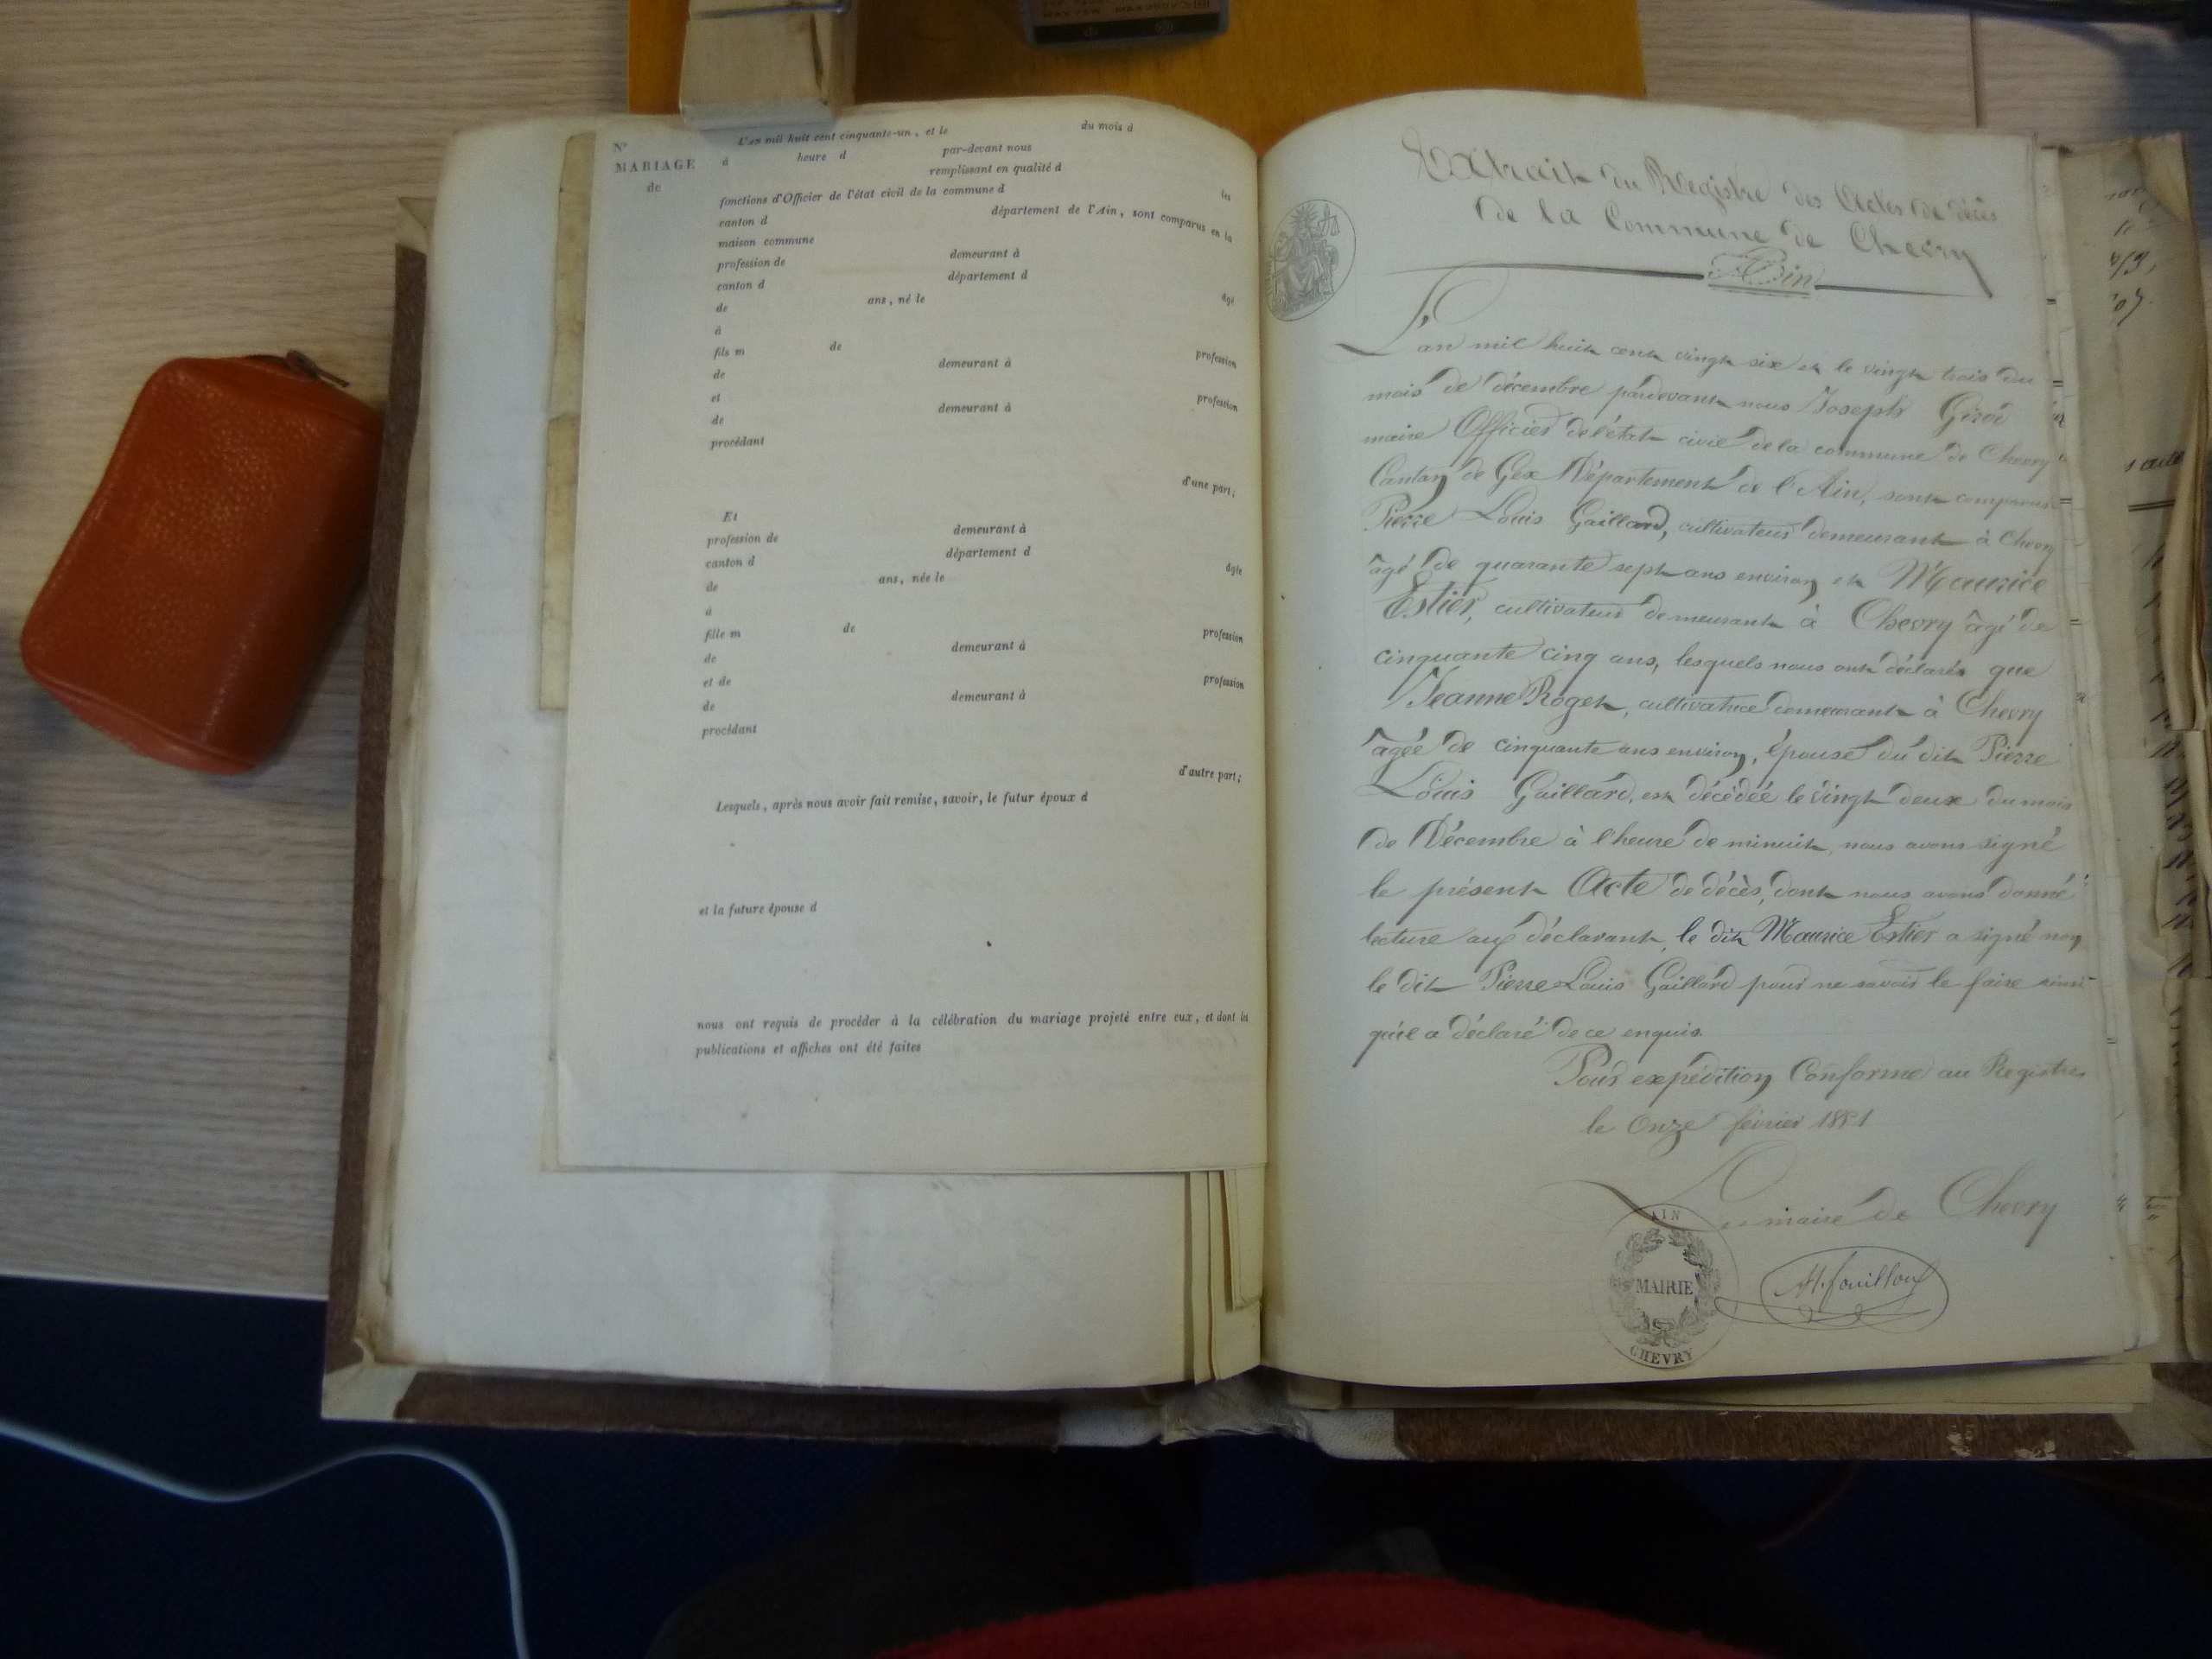 N°
MARIAGE
de
L'an mil huit cent cinquante-un, et le du mois d
à heure d par-devant nous
remplissant en qualité d les
fonctions d'Officier de l'état civil de la commune d
canton d département de l'Ain, sont comparus en la
maison commune
profession de demeurant à
canton d département d
de ans, né le âgé
à
fils m de profession
de demeurant à
et profession
de demeurant à
procédant
d'une part;
Et
profession de demeurant à
canton d département d
de ans, née le âgée
à
fille m de profession
de demeurant à
et de profession
de demeurant à
procédant
d'autre part;
Lesquels, après nous avoir fait remise, savoir, le futur époux d
et la future épouse d
nous ont requis de procéder à la célébration du mariage projeté entre eux, et dont les
publications et affiches ont été faites
Extrait du Registre des Actes de décès
de la Commune de Chevry
Ain
L'an mil huit cent vingt six et le vingt trois du
mois de décembre pardevant nous Joseph Girod
maire Officier de l'état civil de la commune de Chevry
Canton de Gex Département de l'Ain, sont comparus
Pierre Louis Gaillard, cultivateur demeurant à Chevry
âgé de quarante sept ans environ et Maurice
Estier, cultivateur demeurant à Chevry âgé de
cinquante cinq ans, lesquels nous ont déclarés que
Jeanne Roget, cultivatrice demeurant à Chevry
âgée de cinquante ans environ, épouse du dit Pierre
Louis Gaillard, est décédée le vingt deux du mois
de Décembre à l'heure de minuit, nous avons signé
le présent Acte de décès, dont nous avons donné
lecture aux déclarant, le dit Maurice Estier a signé non
le dit Pierre Louis Gaillard pour ne savoir le faire ainsi
qu'il a déclaré de ce enquis.
Pour expédition Conforme au Registre
le Onze février 1851
Le maire de Chevry
AIN
MAIRIE
CHEVRY